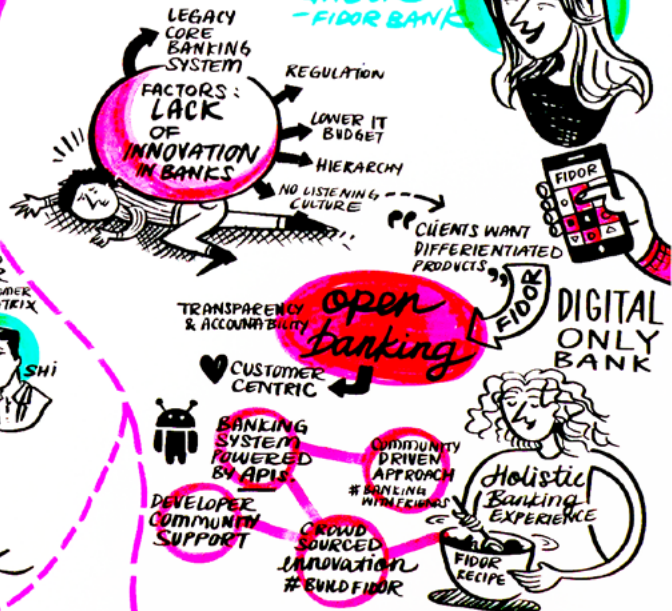 – FIDOR BANK
LEGACY
CORE
BANKING
SYSTEM
FACTORS:
LACK
OF
INNOVATION
IN BANKS
REGULATION
LOWER IT
BUDGET
HIERARCHY
NO LISTENING
CULTURE
"CLIENTS WANT
DIFFERIENTIATED
PRODUCTS"
FIDOR
FIDOR
DIGITAL
ONLY
BANK
open
banking
TRANSPARENCY
& ACCOUNTABILITY
CUSTOMER
CENTRIC
TRIX
SHI
BANKING
SYSTEM
POWERED
BY APIs.
COMMUNITY
DRIVEN
APPROACH
#BANKING
WITHFRIENDS
DEVELOPER
COMMUNITY
SUPPORT
CROWD
SOURCED
innovation
#BUILDFIDOR
Holistic
Banking
EXPERIENCE
FIDOR
RECIPE